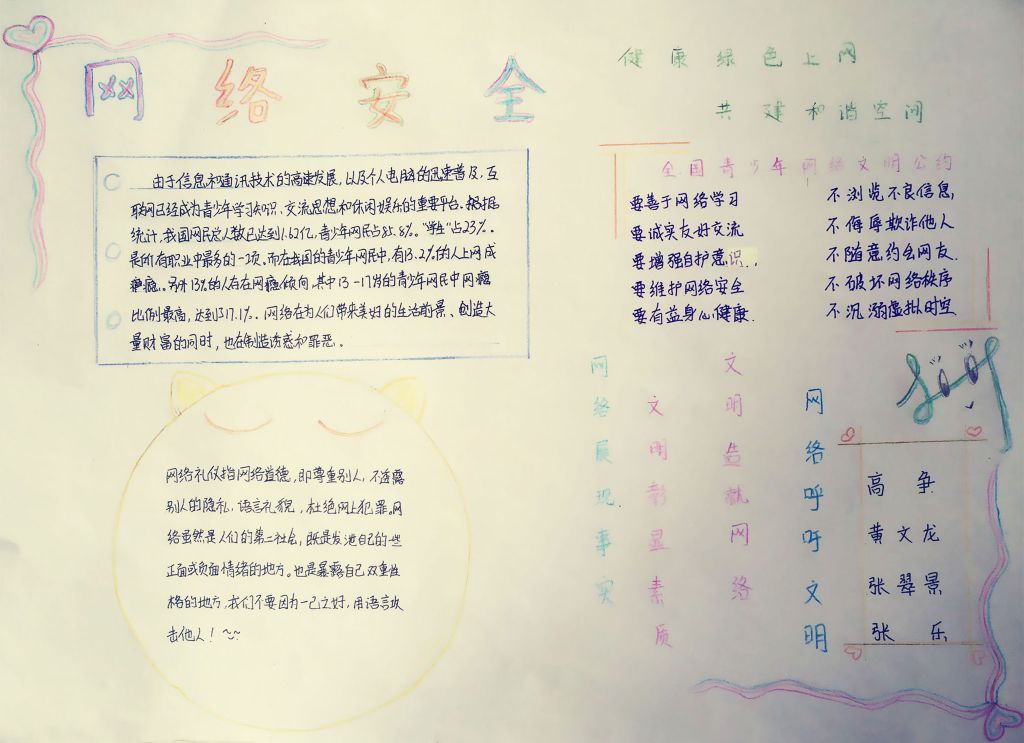 网络安全
由于信息和通讯技术的高速发展,以及个人电脑的迅速普及,互
联网已经成为青少年学习知识、交流思想和休闲娱乐的重要平台。根据
统计,我国网民总人数已达到1.62亿,青少年网民占85.8%。"学生"占23%。
是所有职业中最多的一项。而在我国的青少年网民中,有13.2%的人上网成
瘾。另外13%的人存在网瘾倾向,其中13-17岁的青少年网民中网瘾
比例最高,达到了17.1%。网络在为人们带来美好的生活前景、创造大
量财富的同时,也在制造诱惑和罪恶。
网络礼仪指网络道德,即尊重别人,不透露
别人的隐私,语言礼貌,杜绝网上犯罪。网
络虽然是人们的第二社会,既是发泄自己的一些
正面或负面情绪的地方。也是暴露自己双重性
格的地方,我们不要因为一己之好,用语言攻
击他人!~~
健康绿色上网
共建和谐空间
全国青少年网络文明公约
要善于网络学习 不浏览不良信息,
要诚实友好交流 不侮辱欺诈他人
要增强自护意识.. 不随意约会网友.
要维护网络安全 不破坏网络秩序
要有益身心健康. 不沉溺虚拟时空
网络展现事实
文明彰显素质
文明造就网络
网络呼吁文明
高争
黄文龙
张翠景
张乐